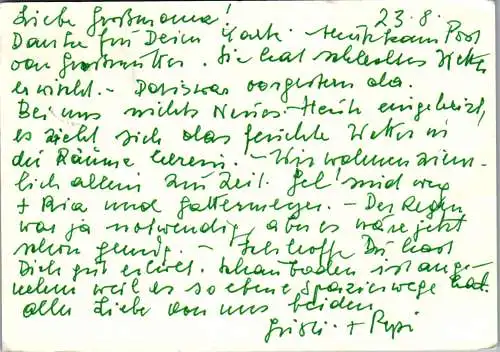 Liebe Großmama! 23.8.
Danke für Deine Karte. Heute kam Post
von Großmutter. Sie hat schlechtes Wetter
erwischt. - Doris war vorgestern da.
Bei uns nichts Neues - Heute eingeheizt,
es zieht sich das feuchte Wetter in
die Räume herein. - Wir wohnen ziem-
lich allein zur Zeit. sind weg
+ Pia und Gattermeyer. - Der Regen
war ja notwendig, aber es wäre jetzt
schon genug. - Ich hoffe Du hast
Dich gut erholt. baden ist ange-
nehm weil es so ebene Spazierwege hat.
alles Liebe von uns beiden
+ Pepi